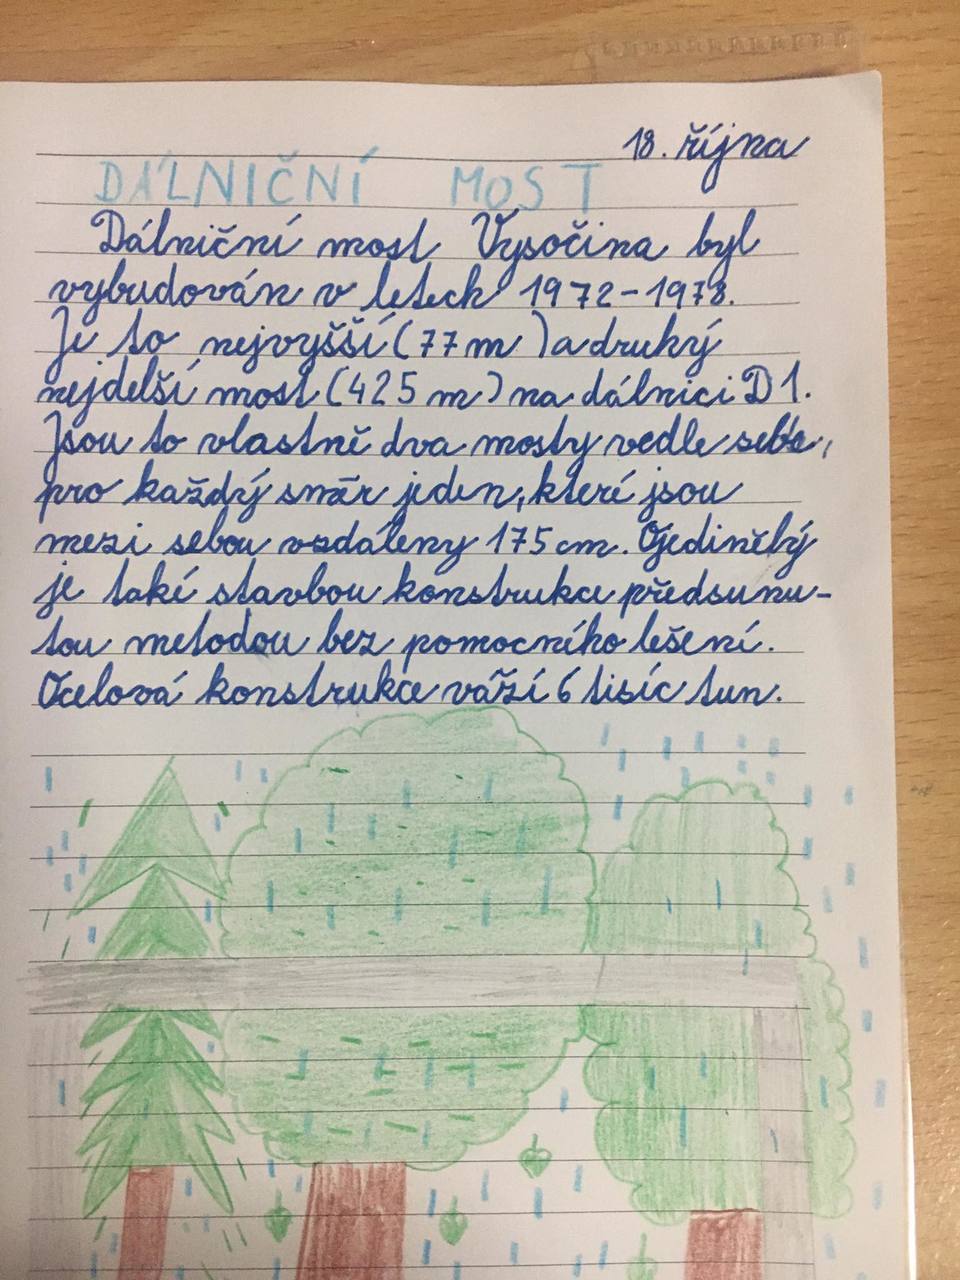 18. října
DÁLNIČNÍ MOST
Dálniční most Vysočina byl
vybudován v letech 1972-1978.
Je to nejvyšší (77 m) a druhý
nejdelší most (425 m) na dálnici D1.
Jsou to vlastně dva mosty vedle sebe,
pro každý směr jeden, které jsou
mezi sebou vzdáleny 175 cm. Ojedinělý
je také stavbou konstrukce předsunu-
tou metodou bez pomocného lešení.
Ocelová konstrukce váží 6 tisíc tun.